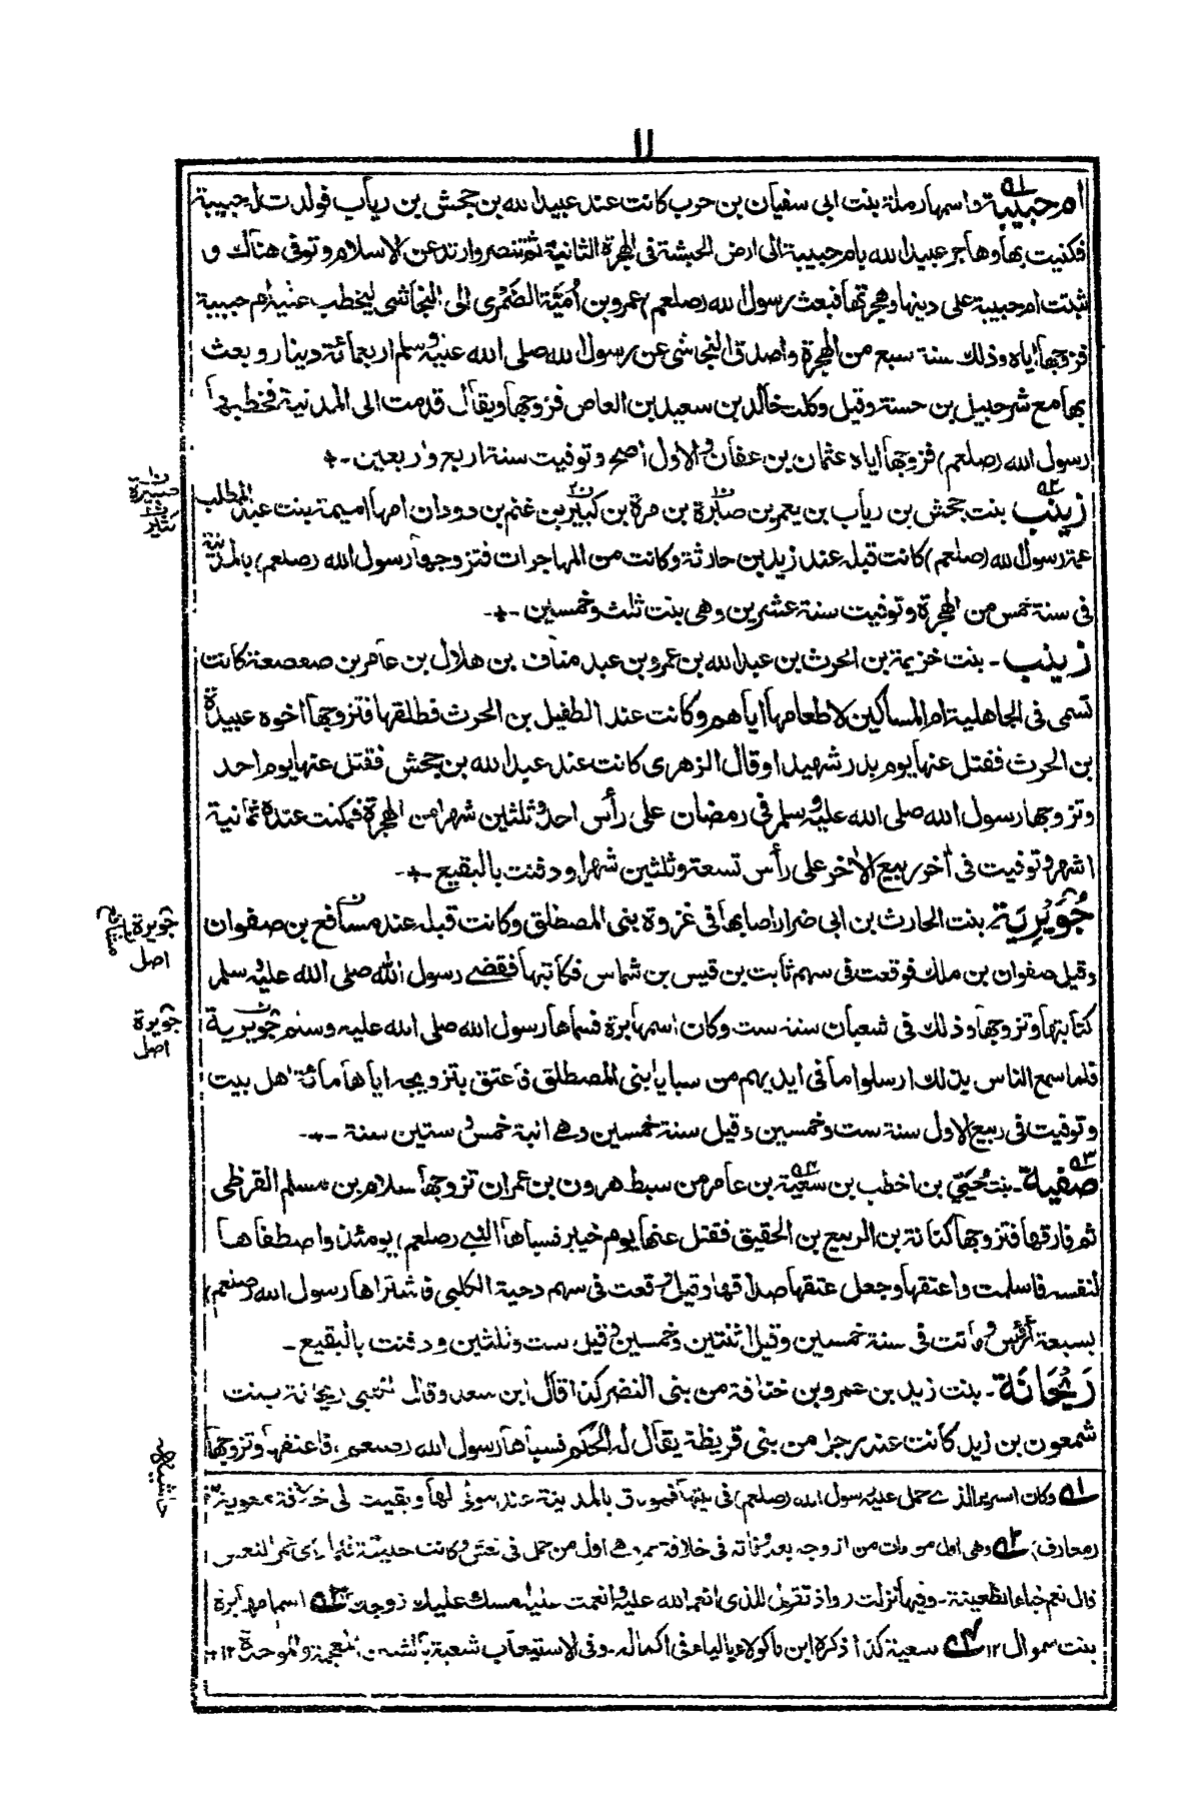 ١١
ام حبيبة واسمها رملة بنت ابى سفيان بن حرب كانت عند عبيد الله بن جحش بن رياب فولدت له حبيبة
فكنيت بها وهاجر عبيد الله بام حبيبة الى ارض الحبشة فى الهجرة الثانية ثم تنصر وارتد عن الاسلام وتوفى هناك و
ثبتت ام حبيبة على دينها وهجرتها فبعث رسول الله (صلعم) عمرو بن اُمَيَّة الضَمْرى الى النجاشى ليخطب عليه ام حبيبة
فزوجها اياه وذلك سنة سبع من الهجرة واصدق النجاشى عن رسول الله صلى الله عليه وسلم اربعمائة دينار وبعث
بها مع شرحبيل بن حسنة وقيل وكلت خالد بن سعيد بن العاص فزوجها ويقال قدمت الى المدينة فخطبها
رسول الله (صلعم) فزوجها اياه عثمان بن عفان والاول اصح وتوفيت سنة اربع واربعين -
زينب بنت جحش بن رياب بن يعمر بن صابرة بن مرة بن كبير بن غنم بن دودان امها اميمة بنت عبد المطلب
عمة رسول الله (صلعم) كانت قبله عند زيد بن حارثة وكانت من المهاجرات فتزوجها رسول الله (صلعم) بالمدينة
فى سنة خمس من الهجرة وتوفيت سنة عشرين وهى بنت ثلث وخمسين -
زينب - بنت خزيمة بن الحرث بن عبد الله بن عمرو بن عبد مناف بن هلال بن عامر بن صعصعة كانت
تسمى فى الجاهلية ام المساكين لاطعامها اياهم وكانت عند الطفيل بن الحرث فطلقها فتزوجها اخوه عبيدة
بن الحرث فقتل عنها يوم بدر شهيدا وقال الزهرى كانت عند عبد الله بن جحش فقتل عنها يوم احد
وتزوجها رسول الله صلى الله عليه وسلم فى رمضان على رأس احد وثلثين شهرا من الهجرة فمكثت عنده ثمانية
اشهر وتوفيت فى آخر ربيع الآخر على رأس تسعة وثلثين شهرا ودفنت بالبقيع -
جُوَيْرِيَة بنت الحارث بن ابى ضرار اصابها فى غزوة بنى المصطلق وكانت قبله عند مسافع بن صفوان
وقيل صفوان بن ملك فوقعت فى سهم ثابت بن قيس بن شماس فكاتبها فقضى رسول الله صلى الله عليه وسلم
كتابتها وتزوجها وذلك فى شعبان سنة ست وكان اسمها برة فسماها رسول الله صلى الله عليه وسلم جويرية
فلما سمع الناس بذلك ارسلوا ما فى ايديهم من سبايا بنى المصطلق فاعتق بتزويجه اياها مائة اهل بيت
وتوفيت فى ربيع الاول سنة ست وخمسين وقيل سنة خمسين وهى ابنة خمس وستين سنة -
صفية - بنت حُيَيّ بن اخطب بن سعية بن عامر من سبط هرون بن عمران تزوجها سلام بن مسلم القرظى
ثم فارقها فتزوجها كنانة بن الربيع بن الحقيق فقتل عنها يوم خيبر فسباها النبى (صلعم) يومئذ واصطفاها
لنفسه فاسلمت واعتقها وجعل عتقها صداقها وقيل وقعت فى سهم دحية الكلبى فاشتراها رسول الله (صلعم)
بسبعة ارؤس وماتت فى سنة خمسين وقيل اثنتين وخمسين وقيل ست وثلثين ودفنت بالبقيع -
رَيْحَانَة - بنت زيد بن عمرو بن خنافة من بنى النضر كذا قال ابن سعد وقال ريحانة بنت
شمعون بن زيد كانت عند رجل من بنى قريظة يقال له الحكم فسباها رسول الله (صلعم) فاعتقها وتزوجها
جويرة
اصل
جويرة
اصل
حاشيه
وكان السرير الذى حمل عليه رسول الله (صلعم) فى بيتها بالمدينة عند لها وبقيت الى خلافة معوية
(معارف) وهى اول من مات من ازوجه بعد وفاته فى خلافة عمر وهى اول من حمل فى نعش وكانت
قال نعم خباء الظعينة - وفيها نزلت (واذ تقول للذى انعم الله عليه وانعمت عليه امسك عليك زوجك) اسم امها برة
بنت سموال ١٢ سعية كذا ذكره ابن ماكولا بالياء فى اكماله - وفى الاستيعاب شعبة بالشين المعجمة والموحدة ١٢